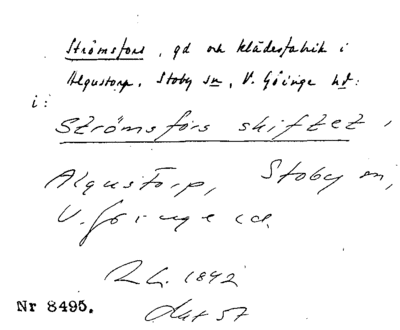 Strömsfors, gd och klädesfabrik i
Algustorp, Stoby sn, V. Göinge hd:
i:
Strömsfors skiftet,
Algustorp, Stoby sn,
V. Göinge hd.
L.L. 1842
Akt 57
Nr 8495.